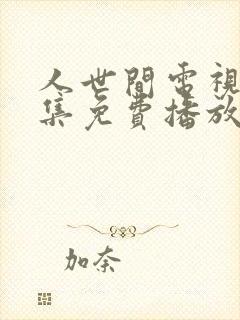 人世間電視
集免費播放
加奈